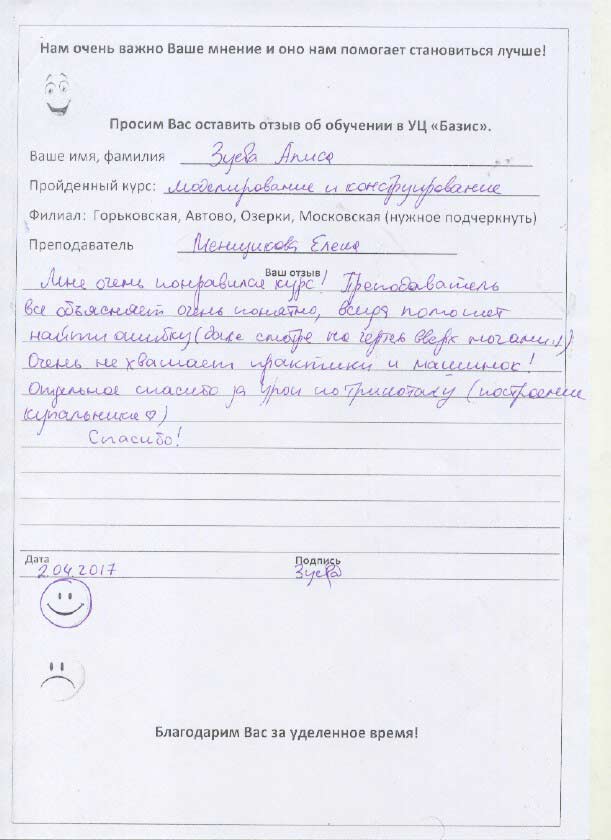 Нам очень важно Ваше мнение и оно нам помогает становиться лучше!
Просим Вас оставить отзыв об обучении в УЦ «Базис».
Ваше имя, фамилия Зуева Алиса
Пройденный курс: моделирование и конструирование
Филиал: Горьковская, Автово, Озерки, Московская (нужное подчеркнуть)
Преподаватель Менщикова Елена
Ваш отзыв
Мне очень понравился курс! Преподаватель
все объясняет очень понятно, всегда поможет
найти ошибку (даже смотря на чертеж вверх ногами!).
Очень не хватает практики и машинок!
Отдельное спасибо за урок по трикотажу (построение
купальника ♡)
Спасибо!
Дата
Подпись
2.04.2017 Зуева
Благодарим Вас за уделенное время!